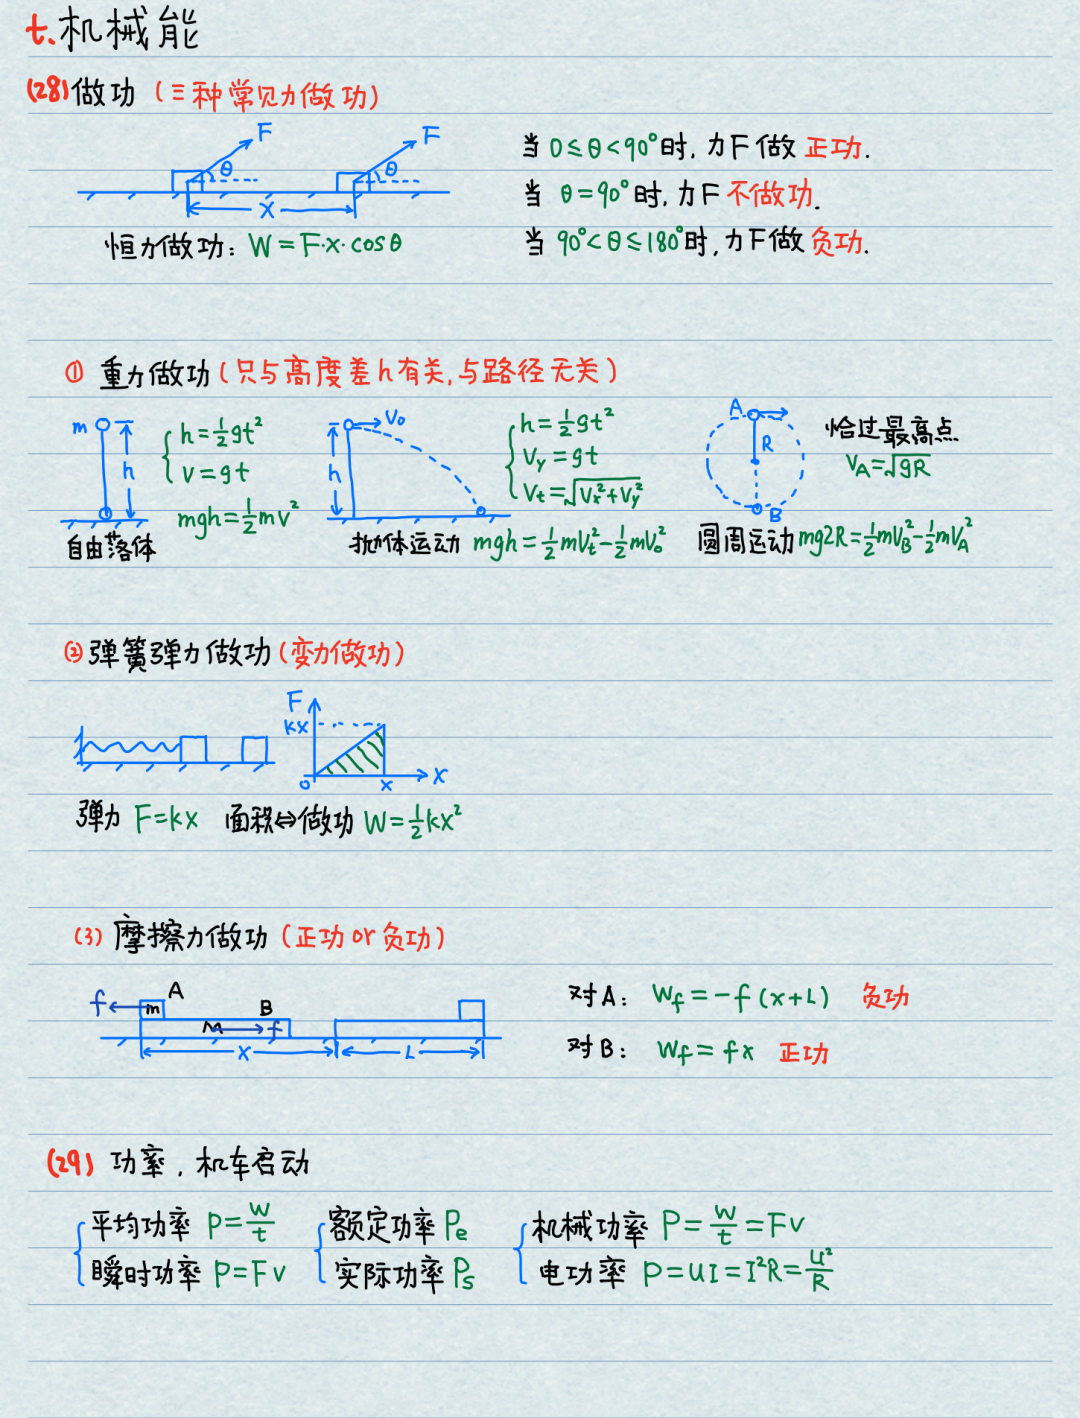 七.机械能
(28)做功(三种常见力做功)
F
θ
F
θ
x
当 0≤θ<90°时,力F做正功.
当 θ=90°时,力F不做功.
恒力做功: W=F·x·cosθ
当 90°<θ≤180°时,力F做负功.
① 重力做功(只与高度差h有关,与路径无关)
m
h
h=½gt²
v=gt
mgh=½mv²
自由落体
V₀
h
h=½gt²
Vy=gt
Vt=√(Vx²+Vy²)
抛体运动 mgh=½mVt²-½mV₀²
A
R
B
恰过最高点
VA=√gR
圆周运动 mg2R=½mVB²-½mVA²
② 弹簧弹力做功(变力做功)
F
kx
o
x
x
弹力 F=kx 面积⇔做功 W=½kx²
(3) 摩擦力做功(正功or负功)
f
m
A
B
M
f
x
L
对A: Wf=-f(x+L) 负功
对B: Wf=fx 正功
(29) 功率,机车启动
平均功率 P=W/t
瞬时功率 P=Fv
额定功率 Pe
实际功率 Ps
机械功率 P=W/t=Fv
电功率 P=UI=I²R=U²/R